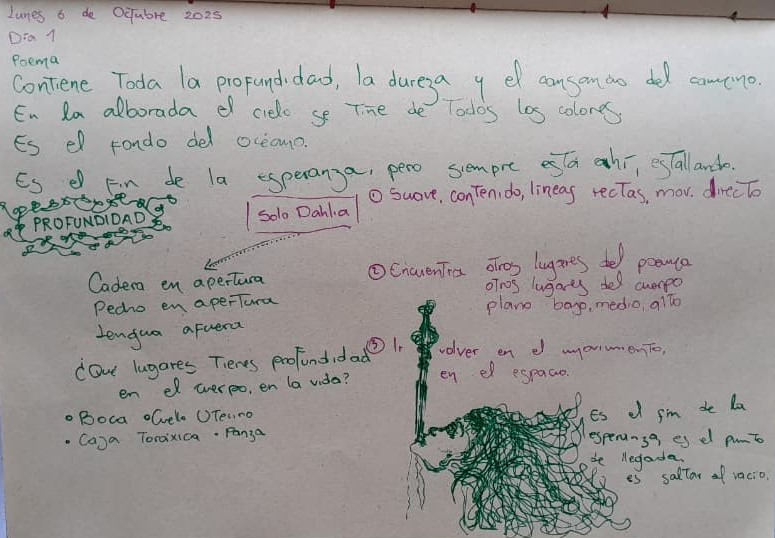 Lunes 6 de Octubre 2025
Día 1
Poema
Contiene Toda la profundidad, la dureza y el cansancio del camino.
En la alborada el cielo se Tiñe de Todos los colores.
Es el fondo del océano.
Es el Fin de la esperanza, pero siempre está ahí, estallando.
PROFUNDIDAD
Solo Dahlia
① Suave, contenido, líneas rectas, mov. directo
Cadera en apertura
Pecho en apertura
Lengua afuera
② Encuentra otros lugares del poema
otros lugares del cuerpo
plano bajo, medio, alto
¿Qué lugares Tienes profundidad
en el cuerpo, en la vida?
• Boca • Cuello Uterino
• Caja Toráxica • Panza
③ Ir y volver en el movimiento,
en el espacio.
Es el fin de la
esperanza, es el punto
de llegada
es saltar al vacío.